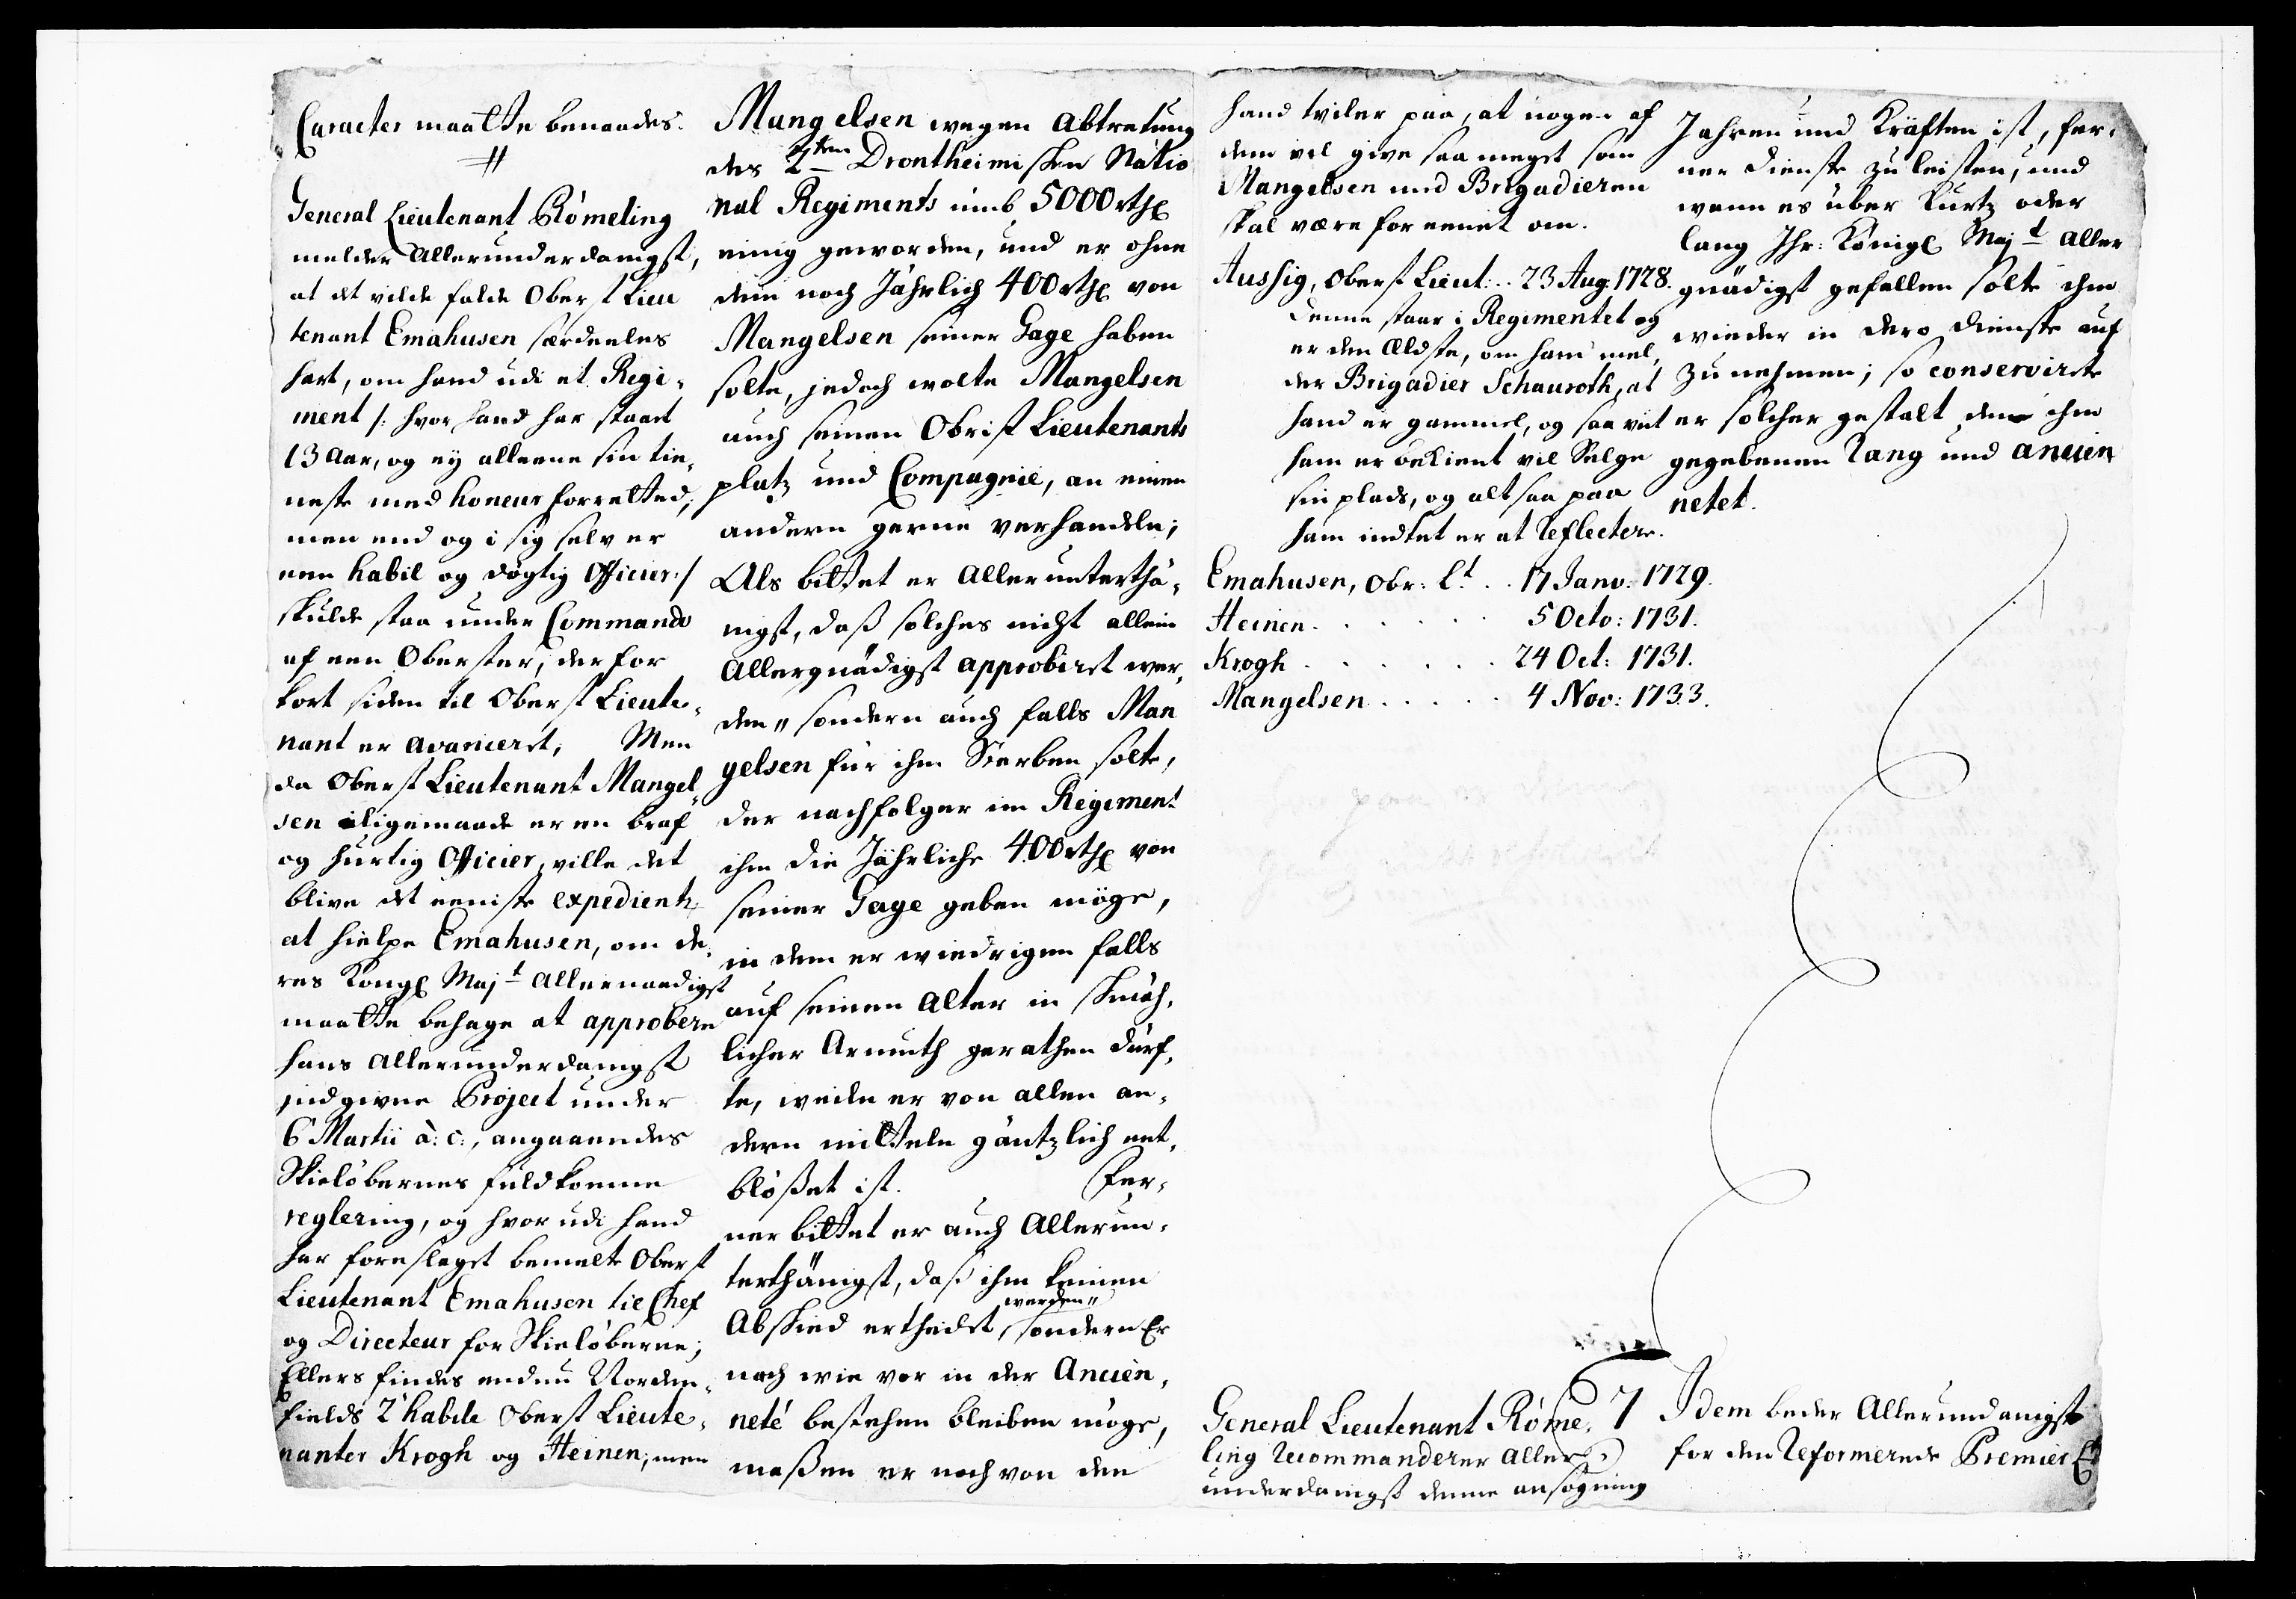 Caracter maatte benaades.
#
General Lieutenant Römeling
melder Allerunderdanigst,
at det vilde falde Oberst Lieu
tenant Emahusen særdeeles
hart, om hand udi et Regi-
ment /: hvor hand har staaet
13 Aar, og ey alleene sin tie-
neste med honeur forretted,
men end og i sig selv er
een habil og døgtig Officier:/
skulde staa under Commando
af een Oberster, der for
kort siden til Oberst Lieute-
nant er avanceret; Men
da Oberst Lieutenant Mangel-
sen iligemaade er en braf
og hurtig Officier, ville det
blive det eeniste expedient,
at hielpe Emahusen, om de-
res Kongl Majt Allernaadigst
maatte behage at approbere
hans Allerunderdanigst
indgivne Project under
6 Martii a: c:, angaaendes
Skieløbernes fuldkomne
reglering, og hvor udi hand
har foreslaget bemelte Oberst
Lieutenant Emahusen til Chef
og Directeur for Skieløberne;
Ellers findes endnu Norden-
fields 2 habile Oberst Lieute-
nanter Krogh og Heinen, men
Mangelsen wegen Abtretung
des 2ten Drontheimschen Natio
nal Regiments umb 5000 rthl
einig geworden, und er ohne
dem noch Jährlich 400 rthl von
Mangelsen seiner Gage haben
solte, jedoch wolte Mangelsen
auch seinen Obrist Lieutenants
platz und Compagnie, an einen
andern gerne verhandeln;
Als bittet er Allerunterthä-
nigst, daß solches nicht allein
Allergnädigst approbiret wer-
den, sondern auch falls Man
gelsen für ihm Sterben solte,
der nachfolger im Regiment
ihm die Jährliche 400 rthl von
seiner Gage geben möge,
in dem er wiedrigen falls
auf seinen Alter in schmäh-
licher Armuth gerathen dürf-
te, weiln er von allen an-
dern mitteln gäntzlich ent-
blößet ist. Fer-
ner bittet er auch Allerun-
terthänigst, daß ihm keinen
Abschied ertheilet werden, sondern Er
nach wie vor in der Ancien-
neté bestehen bleiben möge,
maßen er noch von den
hand tviler paa, at nogen af
dem vil give saa meget som
Mangelsen med Brigadieren
skal være foreenet om.
Aussig, Oberst Lieut: . . 23 Aug. 1728.
Denne staar i Regimentet og
er den Ældste, om ham mel-
der Brigadier Schauroth, at
hand er gammel, og saa vit
ham er bekient vil Selge
sin plads, og altsaa paa
ham indtet er at Reflectere.
Emahusen, Obr: Lt . . 17 Janv: 1729.
Heinen . . . . . . 5 Octo: 1731.
Krogh . . . . . . 24 Oct: 1731.
Mangelsen . . . . . 4 Nov: 1733.
General Lieutenant Röme-
ling Recommanderer Aller-
underdanigst denne ansøgning
Jahren und Kräften ist, fer-
ner Dienste zu leisten, und
wann es über Kurtz oder
lang Ihr: Königl Majt Aller
gnädigst gefallen solte ihm
wieder in dero Dienste auf
zu nehmen; so conservirete
er solcher gestalt den ihm
gegebenen Rang und ancien
netet.
7 Idem beder Allerundanigst
for den Reformerede Premier Lt